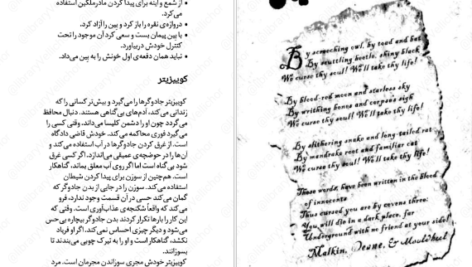 • از شمع و آینه برای پیدا کردن مادر ملکین استفاده
می‌کرد.
• دروازه‌ی نقره را باز کرد و پین را آزاد کرد.
• با پین پیمان بست و سعی کرد آن موجود را تحت
کنترل خودش دربیاورد.
• نباید همان دفعه‌ی اول خونش را به پین می‌داد.
کوییزیتر
کوییزیتر جادوگرها را می‌گیرد و بیش‌تر کسانی را که
زندانی می‌کند، آدم‌های بی‌گناهی هستند. دنبال محافظ
می‌گردد چون او را دشمن کلیسا می‌داند. وقتی کسی را
می‌گیرد فوری محاکمه می‌کند. خودش قاضی دادگاه
است. از غرق کردن جادوگرها در آب استفاده می‌کند و
آن‌ها را در حوضچه‌ی عمیقی می‌اندازد. اگر کسی غرق
شود بی‌گناه است اما اگر روی آب معلق بماند، گناهکار
است. هم‌چنین از سوزن برای پیدا کردن شیطان
استفاده می‌کند. سوزن را در جایی از بدن جادوگر که
گمان می‌کند حسی در آن قسمت وجود ندارد، فرو
می‌کند که واقعاً شکنجه‌ی عذاب‌آوری است. وقتی که
این کار را بارها تکرار کردند بدن جادوگر بیچاره بی‌حس
می‌شود و دیگر چیزی احساس نمی‌کند. اگر او فریاد
نکشد، گناهکار است و او را به تیرک چوبی می‌بندند تا
بسوزانند.
کوییزیتر خودش مجری سوزاندن مجرمان است. مرد
By screeching owl, by toad and bat
By scuttling beetle, shiny black
We curse thy soul! We'll take thy life!
By blood-red moon and starless sky
By writhing bones and corpses sigh
We curse thy soul! We'll take thy life!
By slithering snake and long-tailed rat
By mandrake root and familiar cat
We curse thy soul! We'll take thy life!
These words have been written in the blood
of innocents
Thus cursed you are by covens three:
You will die in a dark place, far
Underground with no friend at your side!
Malkin, Deane, & Mouldheel